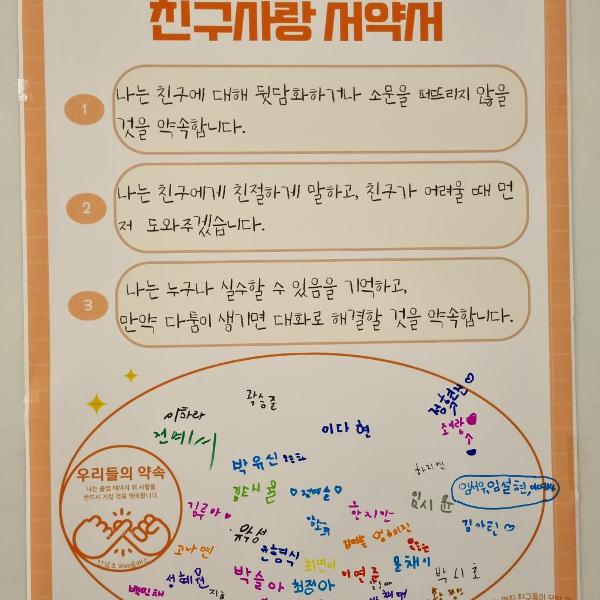 친구사랑 서약서
1
나는 친구에 대해 뒷담화하거나 소문을 퍼뜨리지 않을
것을 약속합니다.
2
나는 친구에게 친절하게 말하고, 친구가 어려울 때 먼
저 도와주겠습니다.
3
나는 누구나 실수할 수 있음을 기억하고,
만약 다툼이 생기면 대화로 해결할 것을 약속합니다.
곽승준
이하라
이다현
전예서
박유신
하지민
우리들의 약속
나는 졸업 때까지 위 사항을
반드시 지킬 것을 약속합니다.
김시율
전예슬
임서우, 임설현,
임시윤
김루아
한지안
김아린
유성
고나연
윤형식
최연아
엄혜진
성혜원
박슬아
최정아
이연률
윤채이
박시호
백민채